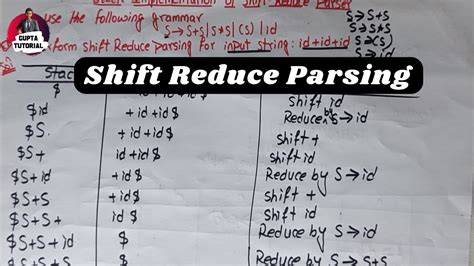 Stack Implementation of Shift Reduce Parser
use the following grammar
S→S+S|S*S|(S)|id
S→S+S
S→S*S
S→(S)
S→id
form Shift Reduce parsing for input string: id+id+id
GUPTA
TUTORIAL
Shift Reduce Parsing
Stack
$ shift id
$id +id+id$ Reduce by S→id
$S +id+id$ shift +
$S+ id+id$ shift id
$S+id +id$ Reduce by S→id
$S+S +id$ shift +
$S+S+ id$ shift id
$S+S+id $ Reduce by S→id
$S+S+S $ Reduce by S→S+S